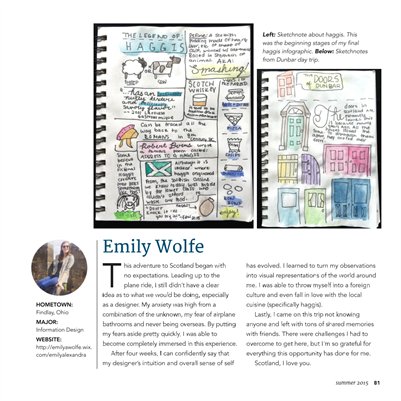 Left: Sketchnote about haggis. This
was the beginning stages of my final
haggis infographic. Below: Sketchnotes
from Dunbar day trip.
THE LEGEND OF
HAGGIS
Smashing!
SCOTCH
WHISKEY
"has an
nuttier texture
and
savory flavor"
Can be traced all the
way back to the
ROMANS
Robert Burns wrote
a famous poem called:
ADDRESS TO A HAGGIS
Although it is
unclear where
haggis originated
enjoy!
THE DOORS
DUNBAR
Emily Wolfe
HOMETOWN:
Findlay, Ohio
MAJOR:
Information Design
WEBSITE:
http://emilyawolfe.wix.
com/emilyalexandra
This adventure to Scotland began with
no expectations. Leading up to the
plane ride, I still didn't have a clear
idea as to what we would be doing, especially
as a designer. My anxiety was high from a
combination of the unknown, my fear of airplane
bathrooms and never being overseas. By putting
my fears aside pretty quickly, I was able to
become completely immersed in this experience.
After four weeks, I can confidently say that
my designer's intuition and overall sense of self
has evolved. I learned to turn my observations
into visual representations of the world around
me. I was able to throw myself into a foreign
culture and even fall in love with the local
cuisine (specifically haggis).
Lastly, I came on this trip not knowing
anyone and left with tons of shared memories
with friends. There were challenges I had to
overcome to get here, but I'm so grateful for
everything this opportunity has done for me.
Scotland, I love you.
summer 2015 81